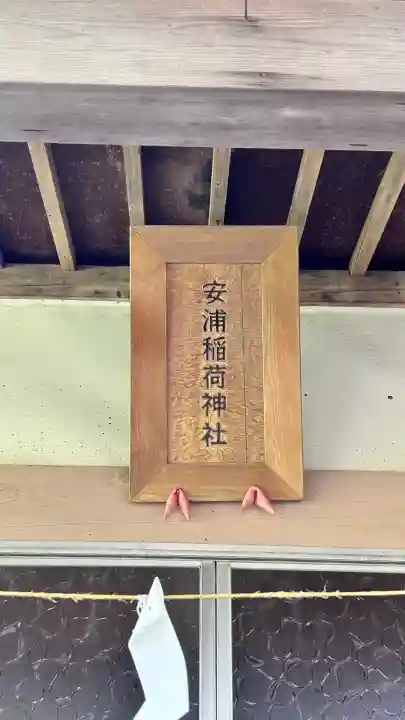 安浦稲荷神社